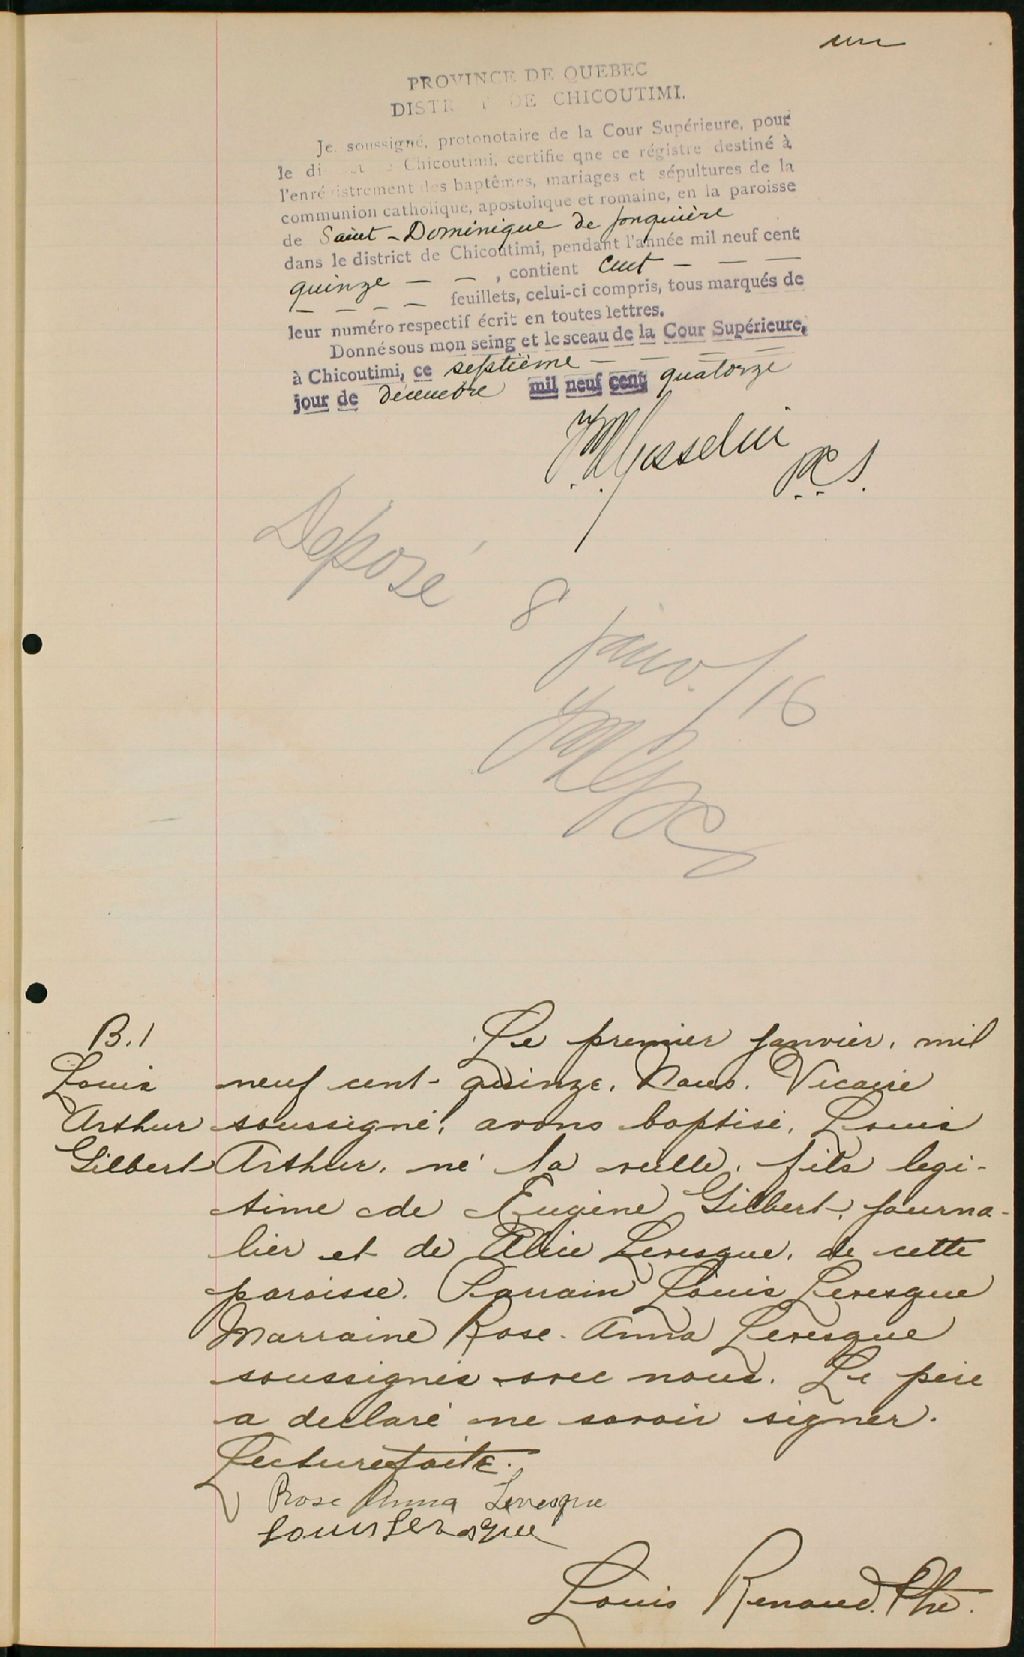 un
PROVINCE DE QUEBEC
DISTR T DE CHICOUTIMI.
Je, soussigné, protonotaire de la Cour Supérieure, pour
le di ct Chicoutimi, certifie que ce régistre destiné à
l'enrégistrement des baptêmes, mariages et sépultures de la
communion catholique, apostolique et romaine, en la paroisse
de Saint-Dominique de Jonquière
dans le district de Chicoutimi, pendant l'année mil neuf cent
quinze — — , contient cent — — —
— — — — feuillets, celui-ci compris, tous marqués de
leur numéro respectif écrit en toutes lettres.
Donné sous mon seing et le sceau de la Cour Supérieure,
à Chicoutimi, ce septième — — — —
jour de décembre mil neuf cent quatorze
P.C.S.
Déposé 8 janv./16
B.1
Louis
Arthur
Gilbert
Le premier janvier, mil
neuf cent-quinze, Nous, Vicaire
soussigné, avons baptisé, Louis
Arthur, né la veille, fils legi-
time de Eugène Gilbert, journa-
lier et de Alice Levesque, de cette
paroisse. Parrain Louis Levesque
Marraine Rose-Anna Levesque
soussignés avec nous. Le père
a declaré ne savoir signer.
Lecture faite.
Rose Anna Levesque
Louis Levesque
Louis Renaud. Ptre.